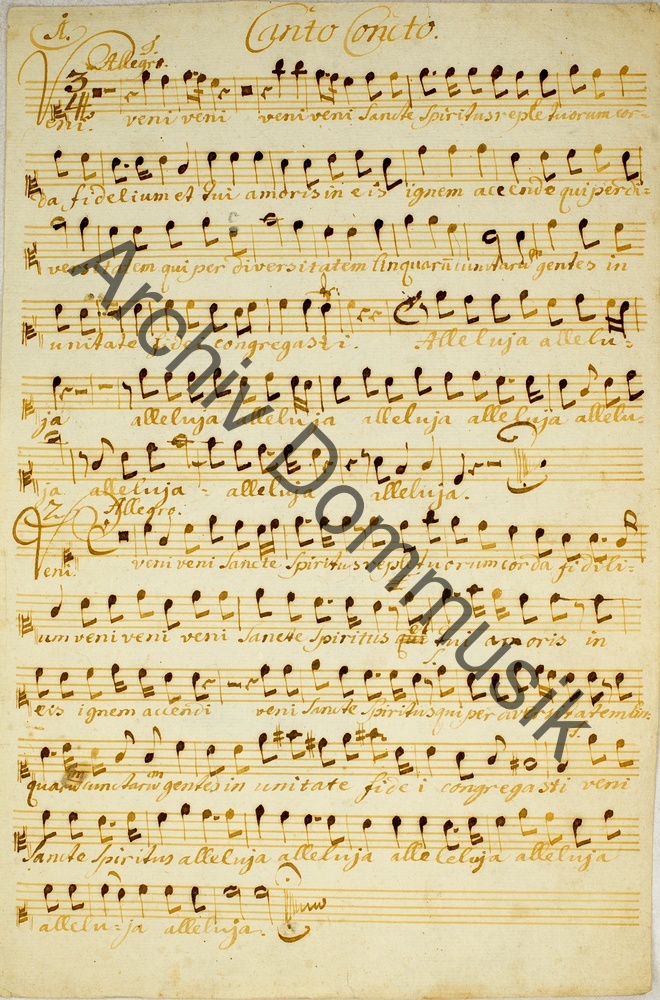 1. Canto Conc:to.
Allegro.
Veni. veni veni veni veni Sancte Spiritus reple tuorum cor-
da fidelium et tui amoris in eis ignem accende qui per di-
versitatem qui per diversitatem linguarū cunctarū gentes in
unitate fidei congregasti. Alleluja allelu-
ja alleluja alleluja alleluja alleluja allelu-
ja alleluja - alleluja alleluja.
2. Allegro.
Veni. veni veni Sancte Spiritus reple tuorum corda fideli-
um veni veni veni Sancte Spiritus et tui amoris in
eis ignem accendi veni Sancte Spiritus qui per diversitatem lin-
quarum cunctarum gentes in unitate fide i congregasti veni
Sancte Spiritus alleluja alleluja alleleluja alleluja
allelu-ja alleluja.
Archiv Dommusik